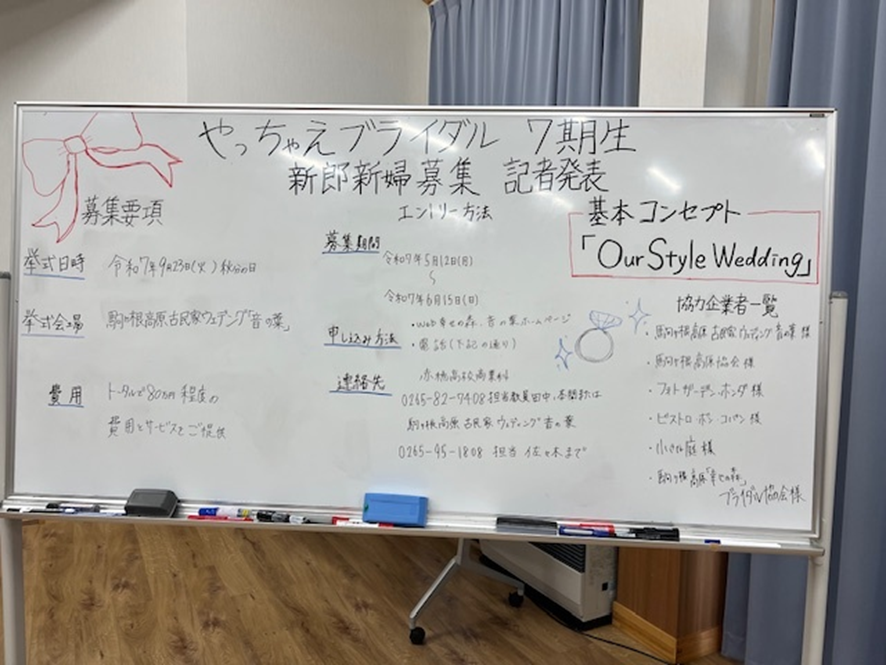 やっちゃえブライダル 7期生
新郎新婦募集 記者発表
募集要項
挙式日時 令和7年9月23日(火)秋分の日
挙式会場 駒ヶ根高原古民家ウェディング「音の葉」
費用 トータルで80万円程度の
費用とサービスをご提供
エントリー方法
募集期間
令和7年5月12日(月)
〜
令和7年6月15日(日)
申し込み方法 ・Web幸せの森、音の葉ホームページ
・電話(下記の通り)
連絡先 赤穂高校商業科
0265-82-7408 担当教員田中、または
駒ヶ根高原古民家ウェディング音の葉
0265-95-1808 担当 佐々木まで
基本コンセプト
「Our Style Wedding」
協力企業者一覧
・駒ヶ根高原古民家ウェディング音の葉様
・駒ヶ根高原協会様
・フォトガーデン・ホンダ様
・ビストロ・ボン・コパン様
・庭様
・駒ヶ根高原「幸せの森」
ブライダル協会様